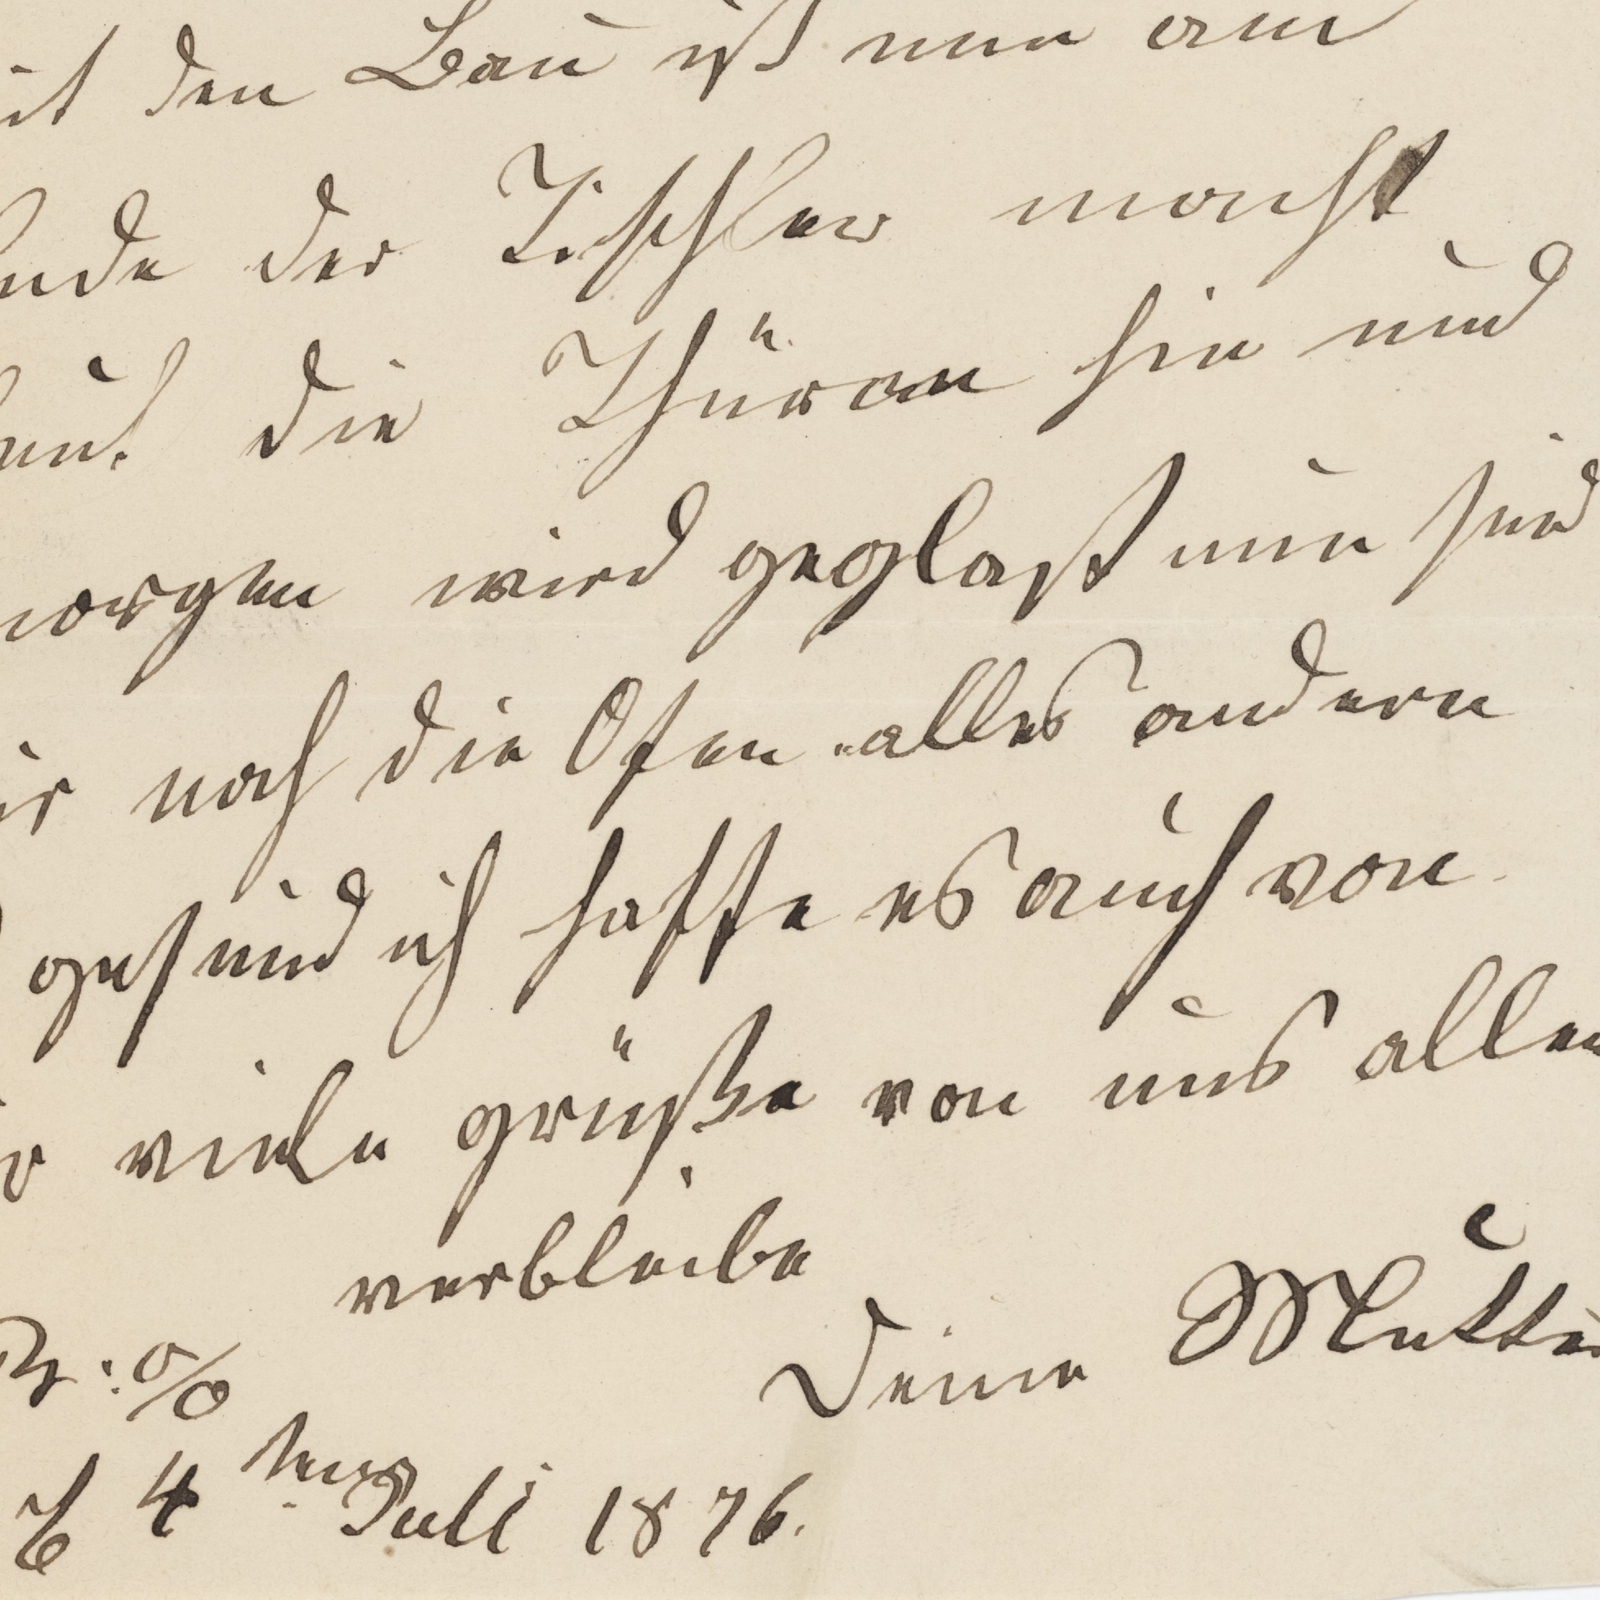 mit den Bau ist nun am
Ende der Tischler macht
heut die Thüren hin und
morgen wird geglast nun sind
wir noch die Ofen alles andern
gesund ich hoffe es auch von
Dir viele grüße von uns allen
verbleibe
Deine Mutter
d 4 tens Juli 1876.